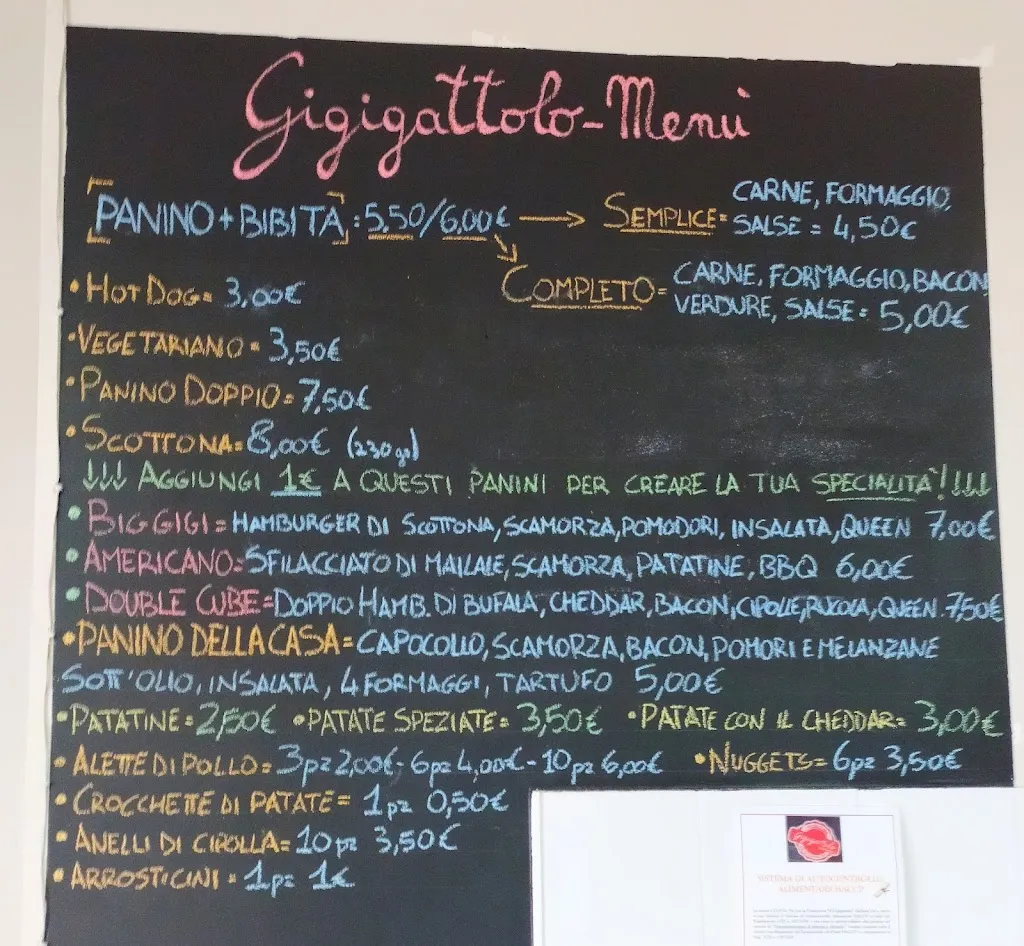 Gigigattolo-Menù
[PANINO + BIBITA]: 5,50/6,00€ → SEMPLICE = CARNE, FORMAGGIO,
SALSE = 4,50€
COMPLETO = CARNE, FORMAGGIO, BACON
VERDURE, SALSE = 5,00€
• HOT DOG = 3,00€
• VEGETARIANO = 3,50€
• PANINO DOPPIO = 7,50€
• SCOTTONA = 8,00€ (230gr)
↓↓↓ AGGIUNGI 1€ A QUESTI PANINI PER CREARE LA TUA SPECIALITA'! ↓↓↓
• BIG GIGI = HAMBURGER DI SCOTTONA, SCAMORZA, POMODORI, INSALATA, QUEEN 7,00€
• AMERICANO = SFILACCIATO DI MAILALE, SCAMORZA, PATATINE, BBQ 6,00€
• DOUBLE CUBE = DOPPIO HAMB. DI BUFALA, CHEDDAR, BACON, CIPOLLE, RUCOLA, QUEEN. 7,50€
• PANINO DELLA CASA = CAPOCOLLO, SCAMORZA, BACON, POMORI E MELANZANE
SOTT'OLIO, INSALATA, 4 FORMAGGI, TARTUFO 5,00€
• PATATINE = 2,50€ • PATATE SPEZIATE = 3,50€ • PATATE CON IL CHEDDAR = 3,00€
• ALETTE DI POLLO = 3pz 2,00€ - 6pz 4,00€ - 10pz 6,00€ • NUGGETS = 6pz 3,50€
• CROCCHETTE DI PATATE = 1pz 0,50€
• ANELLI DI CIPOLLA = 10pz 3,50€
• ARROSTICINI = 1pz 1€
SISTEMA DI AUTOCONTROLLO
ALIMENTARE HACCP